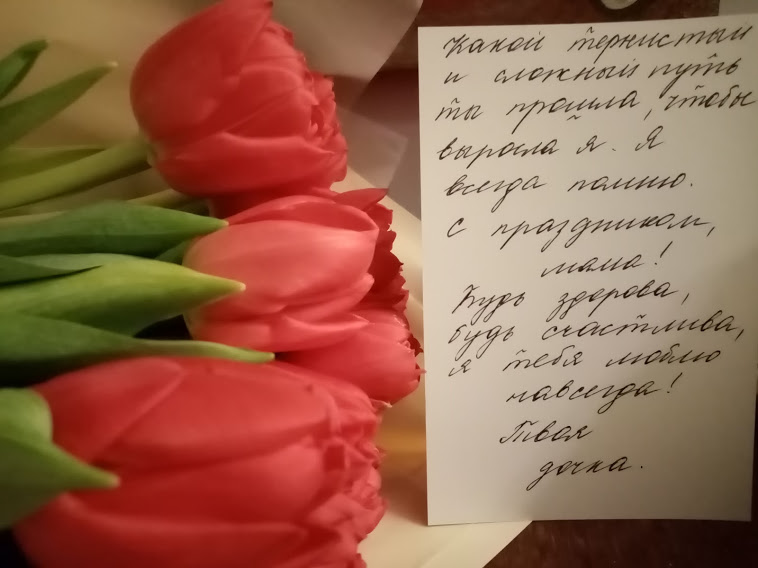 Какой тернистый
и сложный путь
ты прошла, чтобы
выросла я. Я
всегда помню.
С праздником,
мама!
Будь здорова,
будь счастлива,
я тебя люблю
навсегда!
Твоя
дочка.